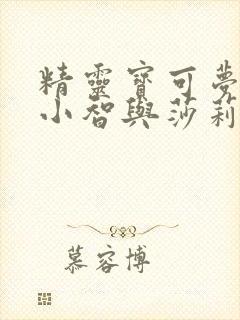 精靈寶可夢
小智與莎莉
慕容博